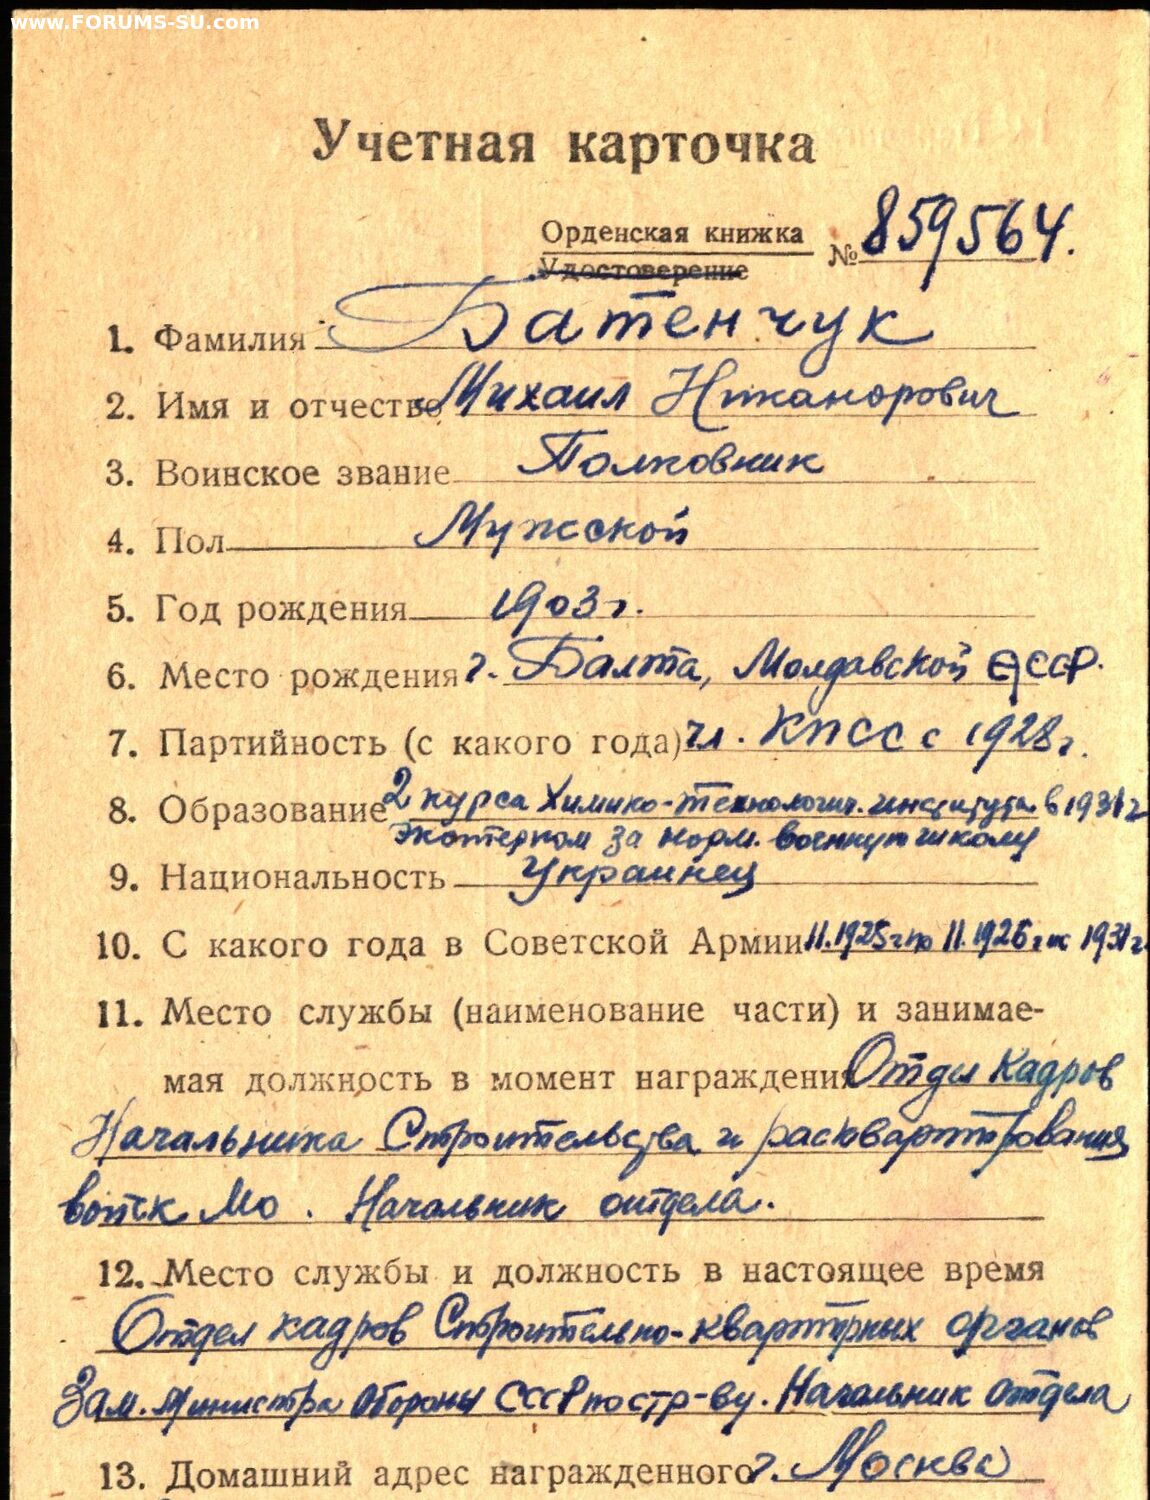 www.FORUMS-SU.com
Учетная карточка
Орденская книжка
Удостоверение
№ 859564.
1. Фамилия Батенчук
2. Имя и отчество Михаил Никанорович
3. Воинское звание Полковник
4. Пол Мужской
5. Год рождения 1903 г.
6. Место рождения г. Балта, Молдавской ССР.
7. Партийность (с какого года) чл. КПСС с 1928 г.
8. Образование 2 курса Химико-технологич. института в 1931 г
экстерном за норм. военную школу
9. Национальность Украинец
10. С какого года в Советской Армии 11.1925 г по 11.1926 г и с 1931 г.
11. Место службы (наименование части) и занимае-
мая должность в момент награждения Отдел кадров
Начальника Строительства и расквартирования
войск МО. Начальник отдела.
12. Место службы и должность в настоящее время
Отдел кадров Строительно-квартирных органов
Зам. Министра Обороны СССР по стр-ву. Начальник отдела
13. Домашний адрес награжденного г. Москва